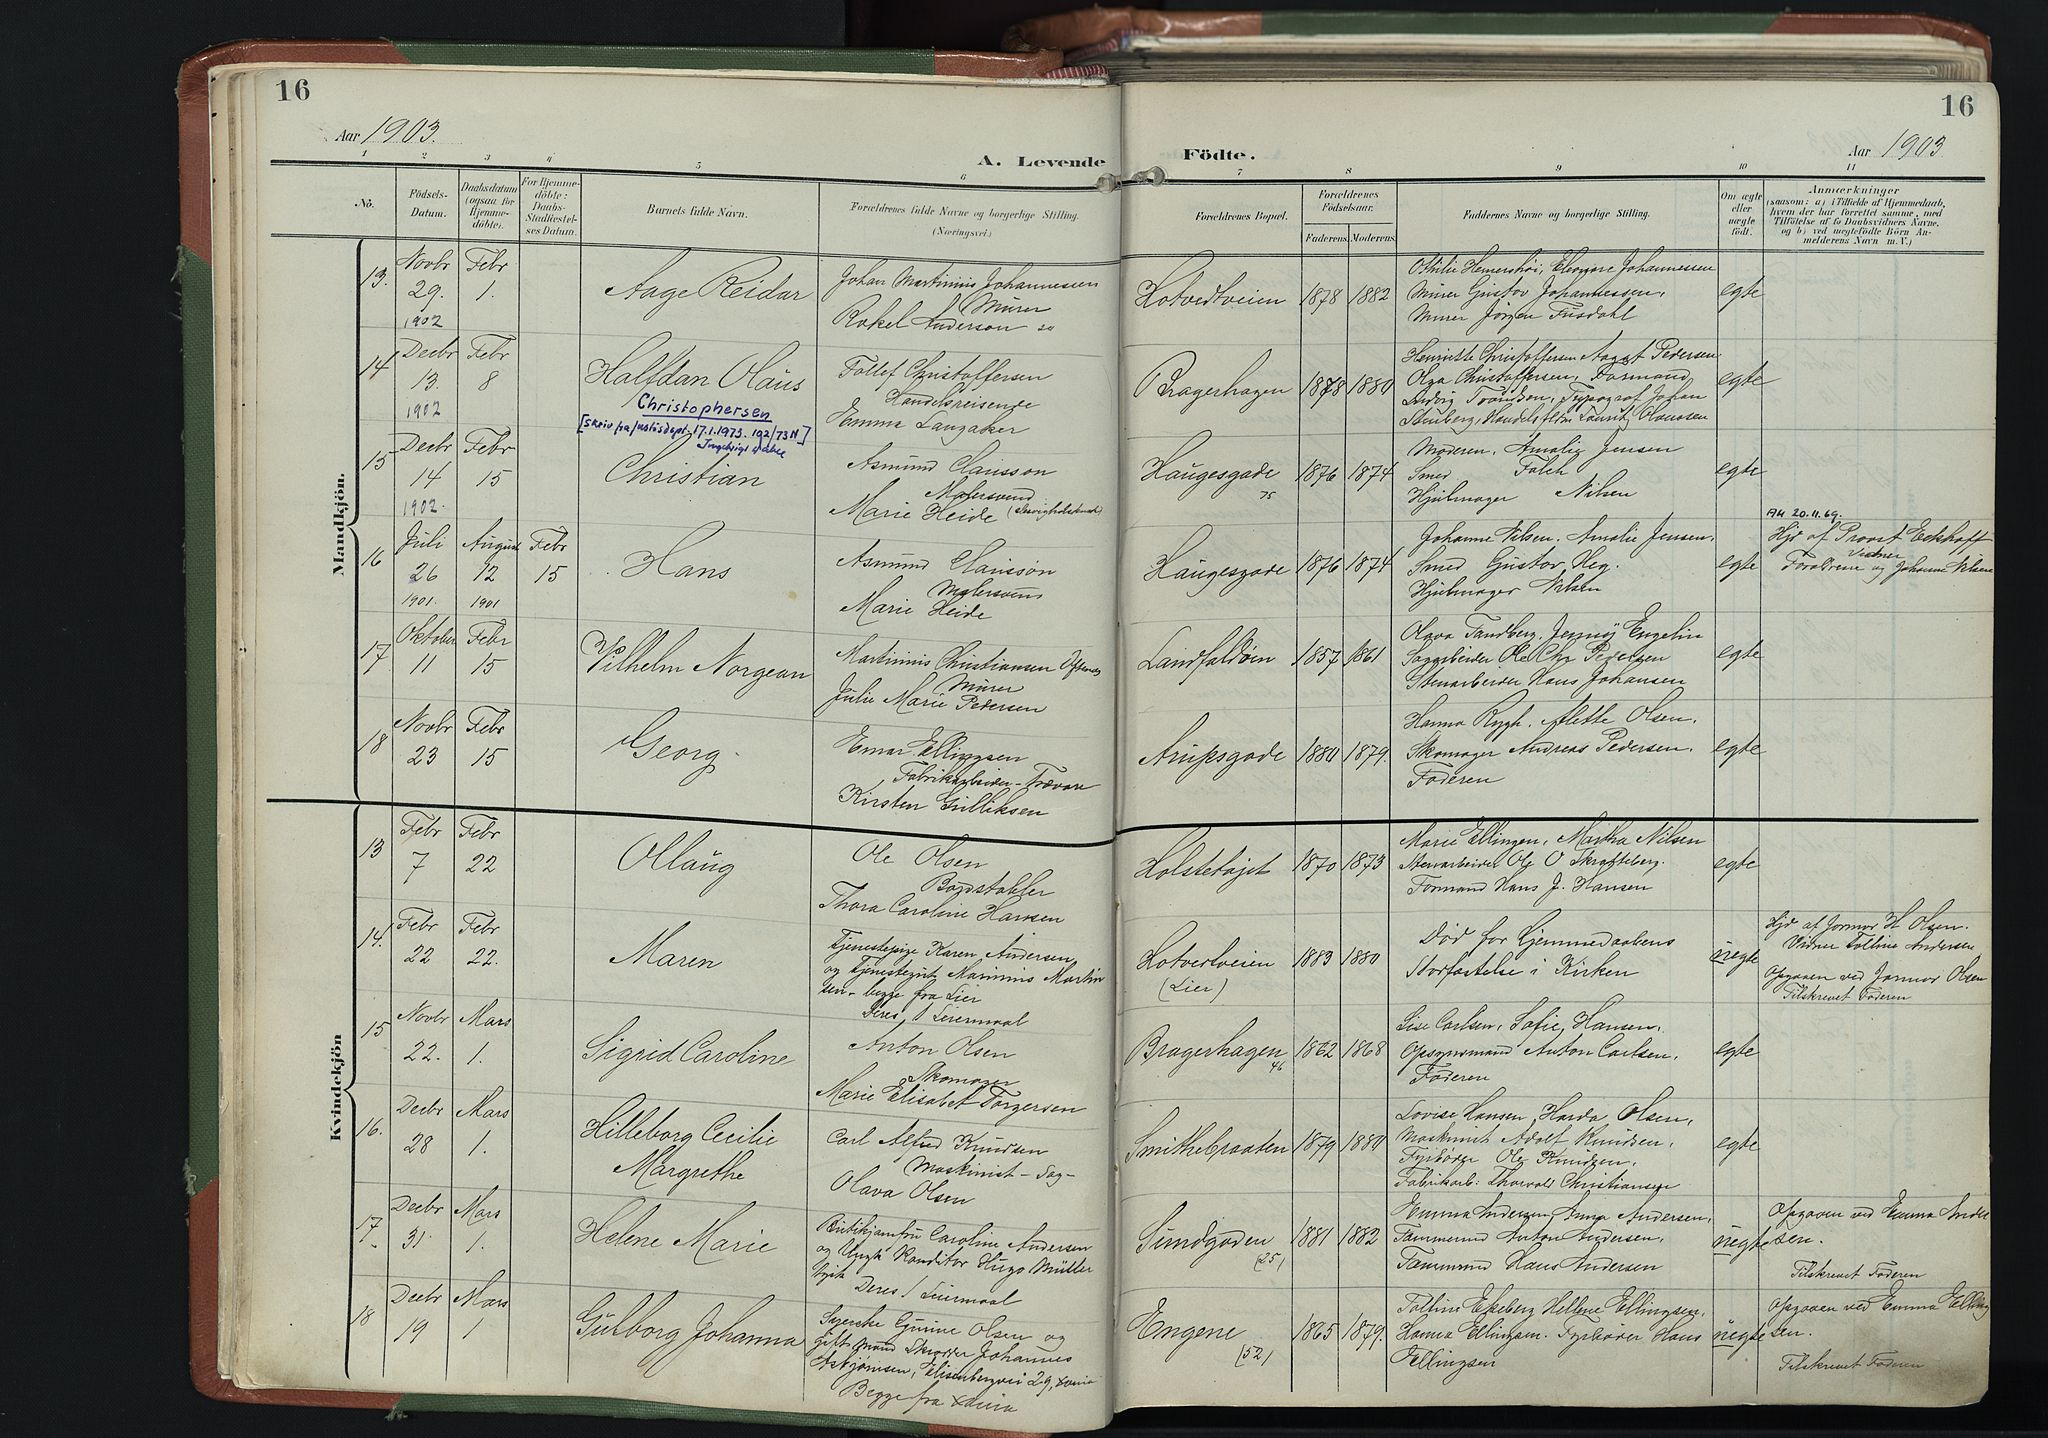 16
16
Aar 1903.
A. Levende
Födte.
Aar 1903
1 2 3 4 5 6 7 8 9 10 11
No.
Födsels-
Datum.
Daabsdatum
(ogsaa for
Hjemme-
döbte).
For Hjemme-
döbte:
Daabs-
Stadfæstel-
ses Datum.
Barnets fulde Navn.
Forældrenes fulde Navne og borgerlige Stilling.
(Næringsvei.)
Forældrenes Bopæl.
Forældrenes
Födselsaar.
Faderens Moderens
Faddernes Navne og borgerlige Stilling.
Om ægte
eller
uægte
födt.
Anmærkninger
(saasom: a) i Tilfælde af Hjemmedaab,
hvem der har forrettet samme, med
Tilföielse af to Daabsvidners Navne,
og b) ved uegtefödte Börn An-
melderens Navn m. V.)
Mandkjön.
13. Novbr 29. 1902
Febr 1.
Aage Reidar
Johan Martinius Johannessen
Murer
Rakel Anderson
Hotvedtveien 1878 1882
Eleonore Johannessen
Murer Gustav Johannessen,
Murer Jörgen Fusdahl
egte
14 Decbr 13. 1902
Febr 8
Halfdan Olaus
Christophersen
[skriv fra justisdept. 17.1.1973. 192/73 N]
Tollef Christoffersen
Handelsreisende
Emma Langaker
Bragerhagen 1878 1880
Henriette Christoffersen August Pedersen
Olga Christoffersen, Formand
Ludvig Trondsen, Typograf Johan
Stenberg, Handelsflm Laurits Olaussen
egte
15 Decbr 14 1902.
Febr 15
Christian
Asmund Clausson
Malersvend
Marie Heide
Haugesgade 75 1876 1874
Moderen, Amalie Jensen
Smed Falch
Hjulmager Nilsen
egte
16 Juli 26 1901.
August 12 1901
Febr 15
Hans
Asmund Clausson
Malersvend
Marie Heide
Haugesgade 1876 1874
Johanne Nilsen, Amalie Jensen,
Smed Gustav Heg.
Hjulmager Nilsen
egte
20.11.69.
Hjd af Provst Eckhoff
Vidner
Forældrene og Johanne Nilsen
17 Oktober 11
Febr 15
Vilhelm Norgean
Martinius Christiansen
Murer
Julie Marie Pedersen
Landfaldöen 1857 1861
Olava Tandberg, Jenny Engelin
Sagarbeider Ole Chr Pedersen
Stenarbeider Hans Johansen
egte
18 Novbr 23
Febr 15
Georg
Einar Ellingsen
Fabrikarbeider - Trævare
Kirsten Gulliksen
Arupsgade 1880 1879.
Hanna Rygh, Alette Olsen,
Skomager Andreas Pedersen,
Faderen
egte
Kvindekjön
13 Febr 7
Febr 22
Ollaug
Ole Olsen
Bordstabler
Thora Caroline Hansen
Holstetöjet 1870 1873
Marie Ellingsen, Martha Nilsen
Stenarbeider Ole O Skratteberg.
Formand Hans J. Hansen
egte
14. Febr 22
Febr 22.
Maren
Tjenestepige Karen Andersen
og Tjenestegut Marinius Martin
sen - begge fra Lier
Deres Leiermaal
Hotvedtveien
(Lier) 1883 1880
Död för Hjemmedaabens
Stadfæstelse i Kirken
uegte
Hjd af Jormor H Olsen.
Vidner Tolline Andersen
Opgaven ved Jormor Olsen
Tilskrevet Faderen
15 Novbr 22.
Mars 1.
Sigrid Caroline
Anton Olsen
Skomager
Marie Elisabet Torgersen
Bragerhagen 46 1862 1868
Lise Carlsen, Sofie Hansen,
Opsynsmand Anton Carlsen,
Faderen
egte
16. Decbr 28
Mars 1.
Hilleborg Cecilie
Margrethe
Carl Alfred Knudsen
Maskinist - Sag-
Olava Olsen
Smithebraaten 1879 1880
Lovise Hansen, Harda Olsen,
Maskinist Adolf Knudsen,
Fyrböder Ole Knudsen,
Fabrikarb: Thorvald Christiansen
egte
17 Decbr 31
Mars 1.
Helene Marie
Butikjomfru Caroline Andersen
og Ungk Konditor Hugo Müller
Deres 1 Leiermaal
Sundgaden
(25) 1881 1882
Emma Andersen, Anna Andersen,
Tømmermd Anton Andersen,
Tømmermd Hans Andersen
uegte
Opgaven ved Emma Ander
sen.
Tilskrevet Faderen
18 Decbr 19
Mars 1
Gulborg Johanna
Syerske Gunine Olsen og
Gift Mand Skrædder Johannes
Asbjörnsen, Elisenbergvei 29, Xania
Begge fra Xania
Engene
(52) 1865 1879.
Tolline Ekeberg Hellene Ellingsen,
Hanna Ellingsen. Fyrböder Hans
Ellingsen
uegte
Opgaven ved Emma Elling
sen.
Tilskrevet Faderen